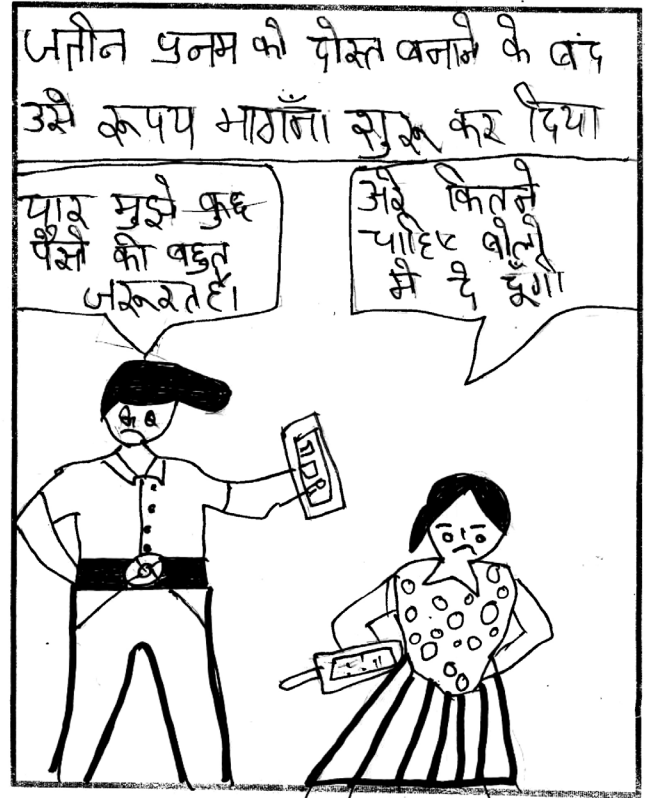 जतीन प्रनम को दोस्त बनाने के बंद
उसे रूपय मागँना सुरू कर दिया
यार मुझे कुछ
पैसो की बहुत
जरूरत है।
अरे कितने
चाहिए बोलो
मे दे दूँगा